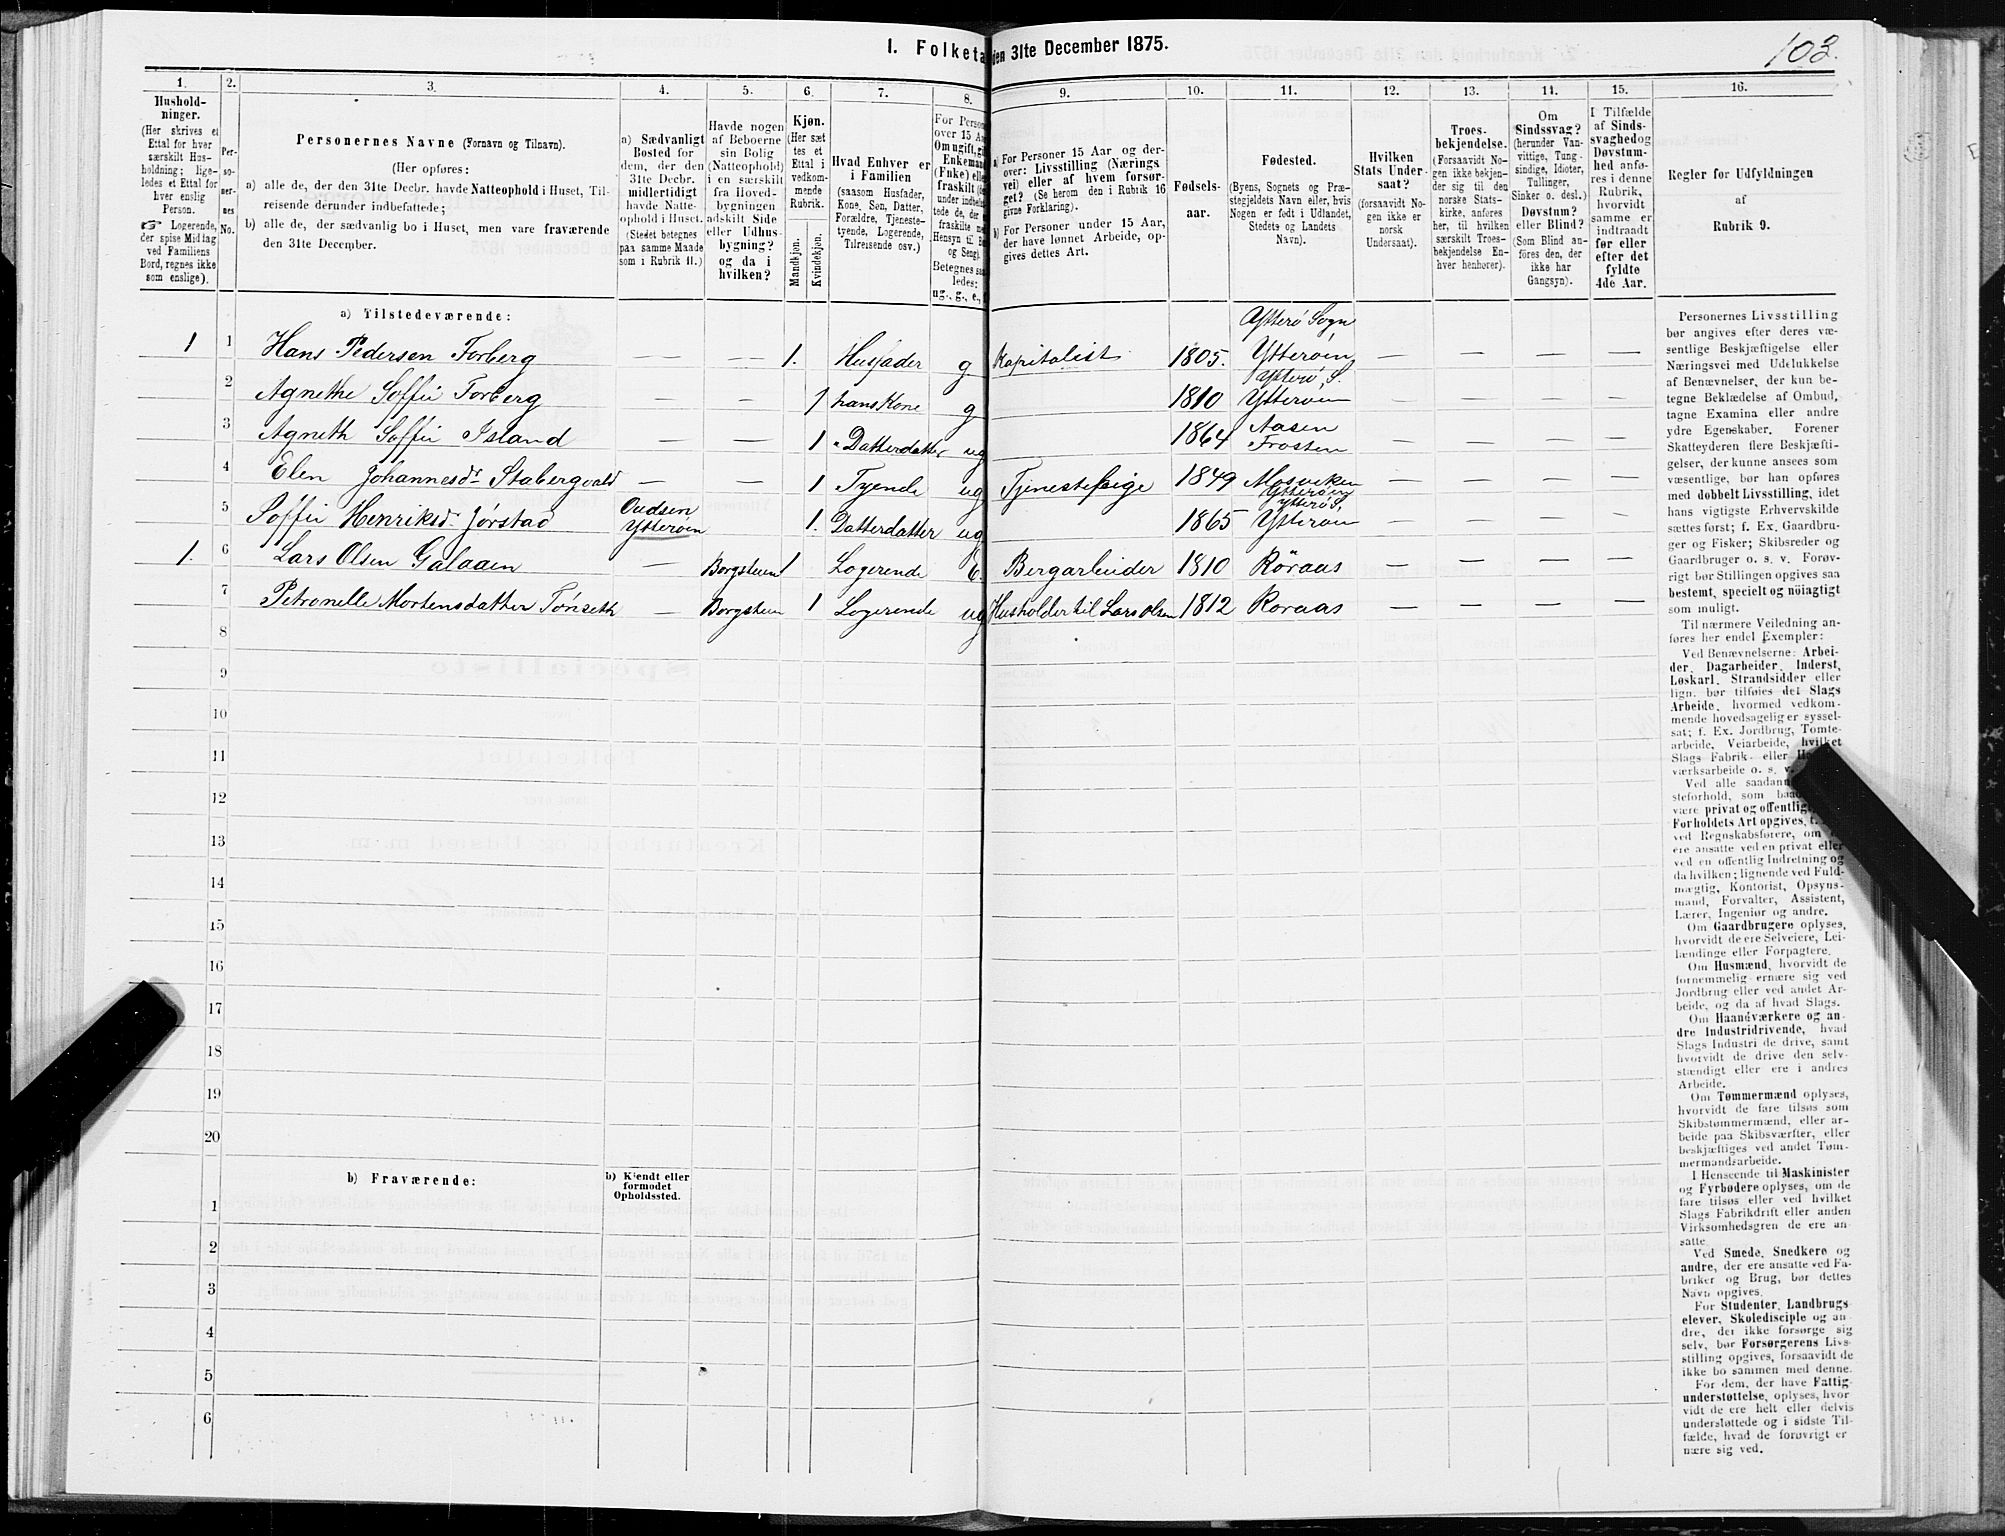 I. Folketa den 31te December 1875.
103.
1.
Hushold-
ninger.
(Her skrives et
Ettal for hver
særskilt Hus-
holdning; lige-
ledes et Ettal for
hver enslig
Person.
☞ Logerende,
der spise Middag
ved Familiens
Bord, regnes ikke
som enslige).
2.
Per-
so-
ner-
nes
No.
3.
Personernes Navne (Fornavn og Tilnavn).
(Her opføres:
a) alle de, der den 31te Decbr. havde Natteophold i Huset, Til-
reisende derunder indbefattede;
b) alle de, der sædvanlig bo i Huset, men vare fraværende
den 31te December.
4.
a) Sædvanligt
Bosted for
dem, der den
31te Decbr.
midlertidigt
havde Natte-
ophold i Huset.
(Stedet betegnes
paa samme Maade
som i Rubrik 11.)
5.
Havde nogen
af Beboerne
sin Bolig
(Natteophold)
i en særskilt
fra Hoved-
bygningen
adskilt Side
eller Udhus-
bygning?
og da i
hvilken?
6.
Kjøn.
(Her sæt-
tes et
Ettal i
vedkom-
mende
Rubrik.
Mandkjøn.
Kvindekjøn.
7.
Hvad Enhver er
i Familien
(saasom Husfader,
Kone, Søn, Datter,
Forældre, Tjeneste-
tyende, Logerende,
Tilreisende osv.)
8.
For Person
over 15 Aa
Om ugift, gif
Enkemand
(Enke) elle
fraskilt (de
under indbefat
tede de, der e
fraskilte me
Hensyn til Bo
og Seng).
Betegnes saa
ledes:
ug., g., e., f
9.
a) For Personer 15 Aar og der-
over: Livsstilling (Nærings-
vei) eller af hvem forsør-
get? (Se herom den i Rubrik 16
givne Forklaring).
b) For Personer under 15 Aar,
der have lønnet Arbeide, op-
gives dettes Art.
10.
Fødsels-
aar.
11.
Fødested.
(Byens, Sognets og Præ-
stegjeldets Navn eller, hvis
Nogen er født i Udlandet,
Stedets og Landets
Navn).
12.
Hvilken
Stats Under-
saat?
(forsaavidt No-
gen ikke er
norsk
Undersaat).
13.
Troes-
bekjendelse.
(Forsaavidt No-
gen ikke bekjen-
der sig til den
norske Stats-
kirke, anføres
her, til hvilken
særskilt Troes-
bekjendelse En-
hver henhører).
14.
Om
Sindssvag?
(herunder Van-
vittige, Tung-
sindige, Idioter,
Tullinger,
Sinker o. desl.)
Døvstum?
eller Blind?
(Som Blind an-
føres den, der
ikke har
Gangsyn).
15.
I Tilfælde
af Sinds-
svaghed og
Døvstum-
hed anfø-
res i denne
Rubrik,
hvorvidt
samme er
indtraadt
før eller
efter det
fyldte
4de Aar.
16.
Regler for Udfyldningen
af
Rubrik 9.
a) Tilstedeværende:
1 1 Hans Pedersen Forberg — — 1. Husfader g Kapitalist 1805. Ytterø Sogn Ytterøen — — — —
2 Agnethe Soffii Forberg — — 1 hans Kone g 1810 Ytterø, S. Ytterøen — — — —
3 Agneth Soffii Island — — 1 Datterdatter ug 1864 Aasen Frosten — — — —
4 Elen Johannesdr Stabergvald — — 1 Tyende ug Tjenestepige 1849 Mosviken Ytterøen — — — —
5 Soffii Henriksd. Jørstad Oudsen Ytterøen — 1. Datterdatter ug 1865 Ytterø S. Ytterøen — — — —
1. 6 Lars Olsen Galaaen — Borgstuen 1 Logerende e. Bergarbeider 1810 Röraas — — — —
7 Petronelle Mortensdatter Tönseth — Borgstuen 1 Logerende ug Husholder til Lars Olsen 1812 Roraas — — — —
8
9
10
11
12
13
14
15
16
17
18
19
20
b) Fraværende:
b) Kjendt eller
formodet
Opholdssted.
1
2
3
4
5
6
Personernes Livsstilling
bør angives efter deres væ-
sentlige Beskjæftigelse eller
Næringsvei med Udelukkelse
af Benævnelser, der kun be-
tegne Beklædelse af Ombud,
tagne Examina eller andre
ydre Egenskaber. Forener
Skatteyderen flere Beskjæfti-
gelser, der kunne ansees som
væsentlige, bør han opføres
med dobbelt Livsstilling, idet
hans vigtigste Erhvervskilde
sættes først; f. Ex. Gaardbru-
ger og Fisker; Skibsreder og
Gaardbruger o. s. v. Forøv-
rigt bør Stillingen opgives saa
bestemt, specielt og nöiagtigt
som muligt.
Til nærmere Veiledning an-
føres her endel Exempler:
Ved Benævnelserne: Arbei-
der, Dagarbeider, Inderst,
Løskarl, Strandsidder eller
lign. bør tilføies det Slags
Arbeide, hvormed vedkom-
mende hovedsagelig er syssel-
sat; f. Ex. Jordbrug, Tomte-
arbeide, Veiarbeide, hvilket
Slags Fabrik- eller
værksarbeide o. s. v.
Ved alle saadan
steforhold, som
være privat og offentlig
Forholdets Art opgives,
ved Regnskabsførere, om
ere ansatte ved en privat eller
ved en offentlig Indretning og
da hvilken; lignende ved Fuld-
mægtig, Kontorist, Opsyns-
mand, Forvalter, Assistent,
Lærer, Ingeniør og andre.
Om Gaardbrugere oplyses,
hvorvidt de ere Selveiere, Lei-
lændinge eller Forpagtere.
Om Husmænd, hvorvidt de
fornemmelig ernære sig ved
Jordbrug eller ved andet Ar-
beide, og da af hvad Slags.
Om Haandværkere og an-
dre Industridrivende, hvad
Slags Industri de drive, samt
hvorvidt de drive den selv-
stændigt eller ere i andres
Arbeide.
Om Tømmermænd oplyses,
hvorvidt de fare tilsøs som
Skibstømmermænd, eller ar-
beide paa Skibsværfter, eller
beskjæftiges ved andet Tøm-
mermandsarbeide.
I Henseende til Maskinister
og Fyrbødere oplyses, om de
fare tilsøs eller ved hvilket
Slags Fabrikdrift eller anden
Virksomhedsgren de ere an-
satte.
Ved Smede, Snedkere og
andre, der ere ansatte ved Fa-
briker og Brug, bør dettes
Navn opgives.
For Studenter, Landbrugs-
elever, Skoledisciple og an-
dre, der ikke forsørge sig
selv, bør Forsørgerens Livs-
stilling opgives, forsaavidt de
ikke bo sammen med denne.
For dem, der have Fattig-
understøttelse, oplyses, hvor-
vidt de ere helt eller delvis
understøttede og i sidste Til-
fælde, hvad de forøvrigt er-
nære sig ved.